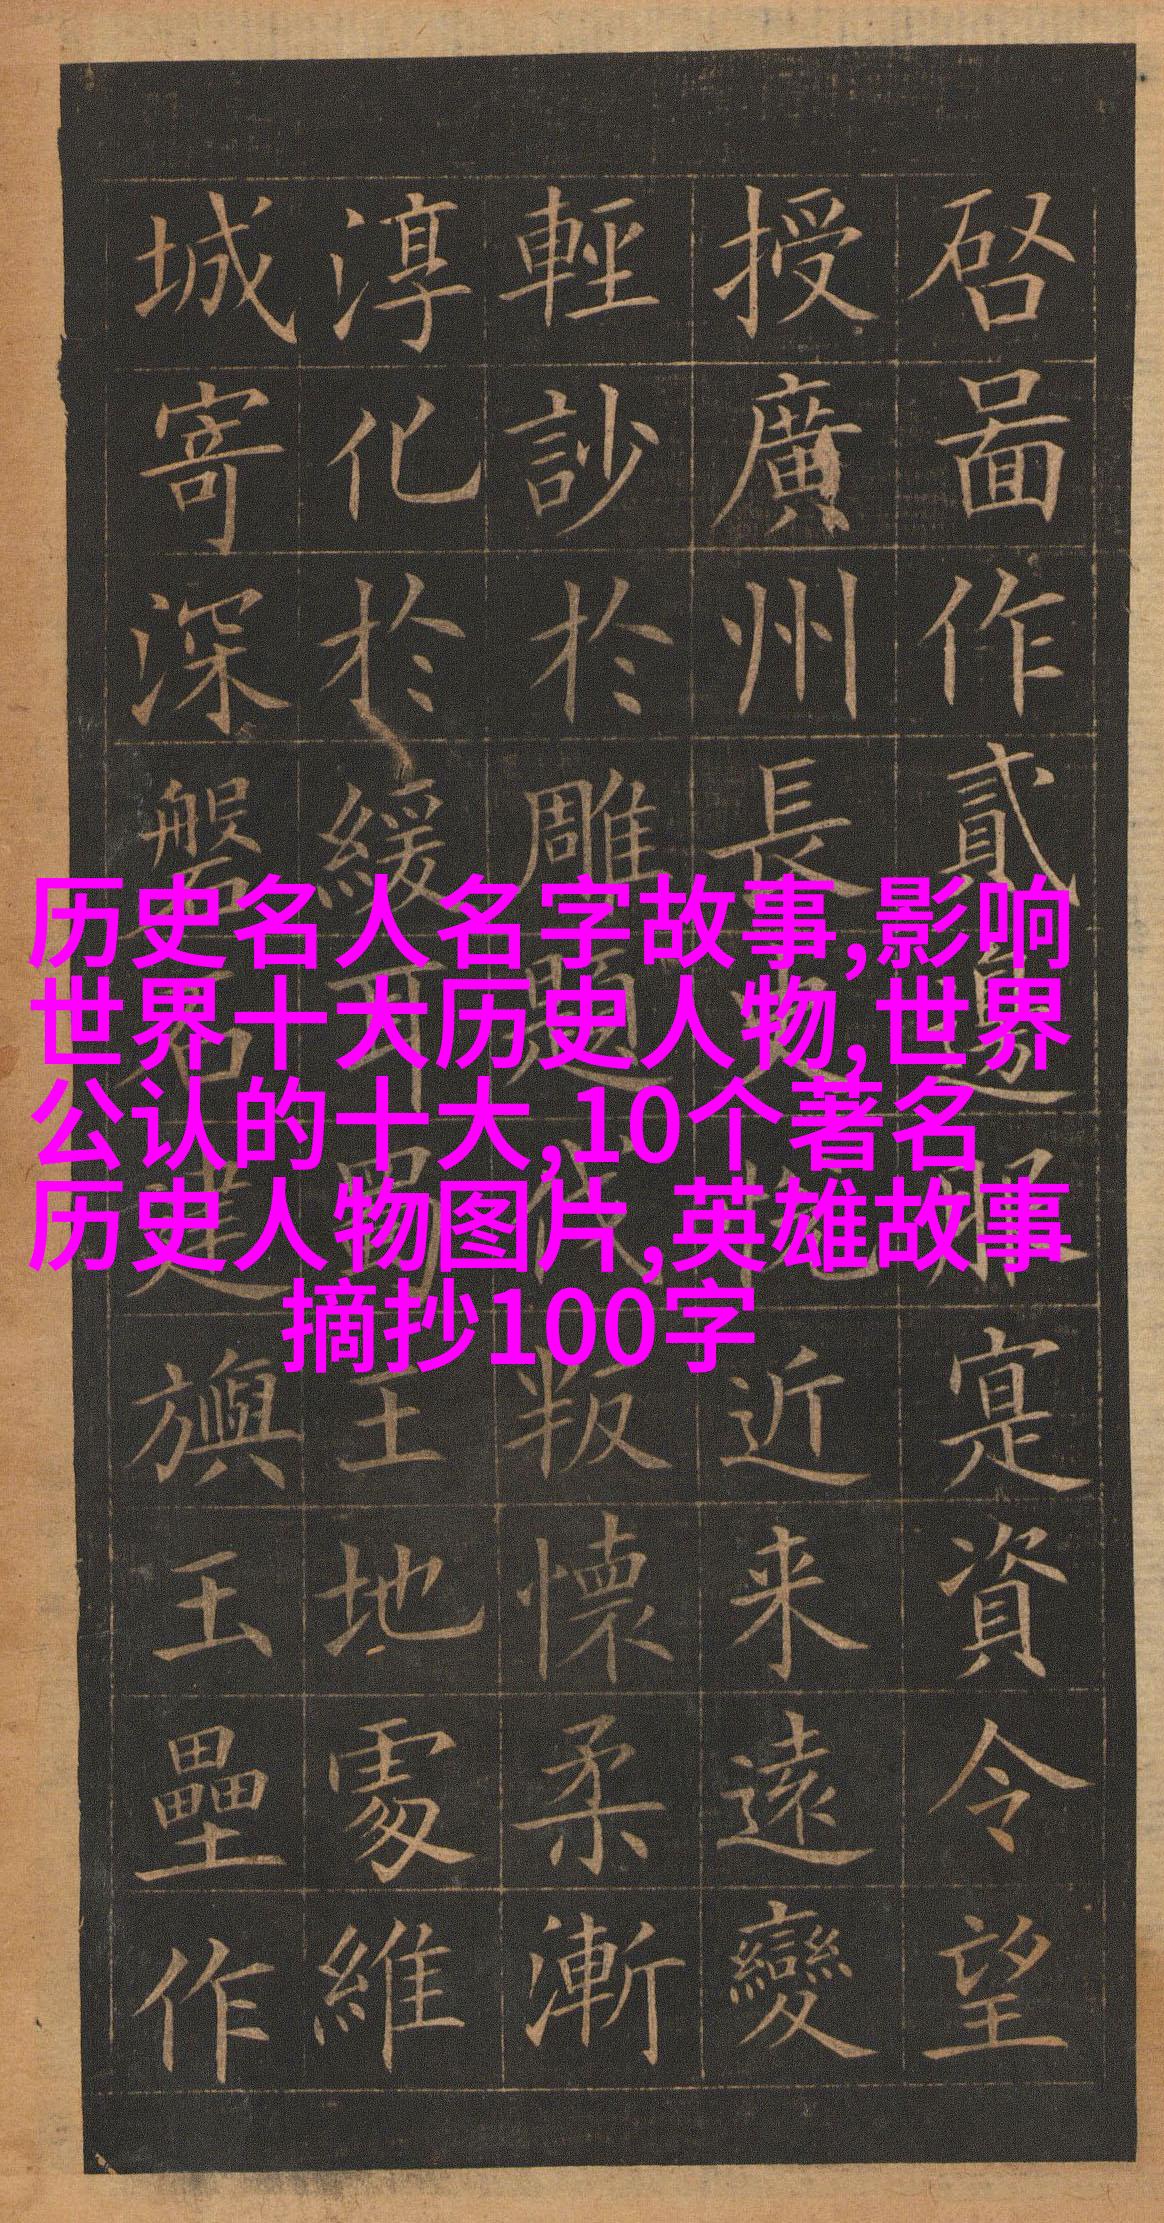 历史名人名字故事,影响
世界十大历史人物,世界
公认的十大,10个著名
历史人物图片,英雄故事
摘抄100字
啓啚作貳邊服寔資令望
授廣州長史悦近来遠變
輕訬於雕題伐叛懷柔漸
淳化於緩耳蜀王地處維
城寄深磐石建旟玉壘作